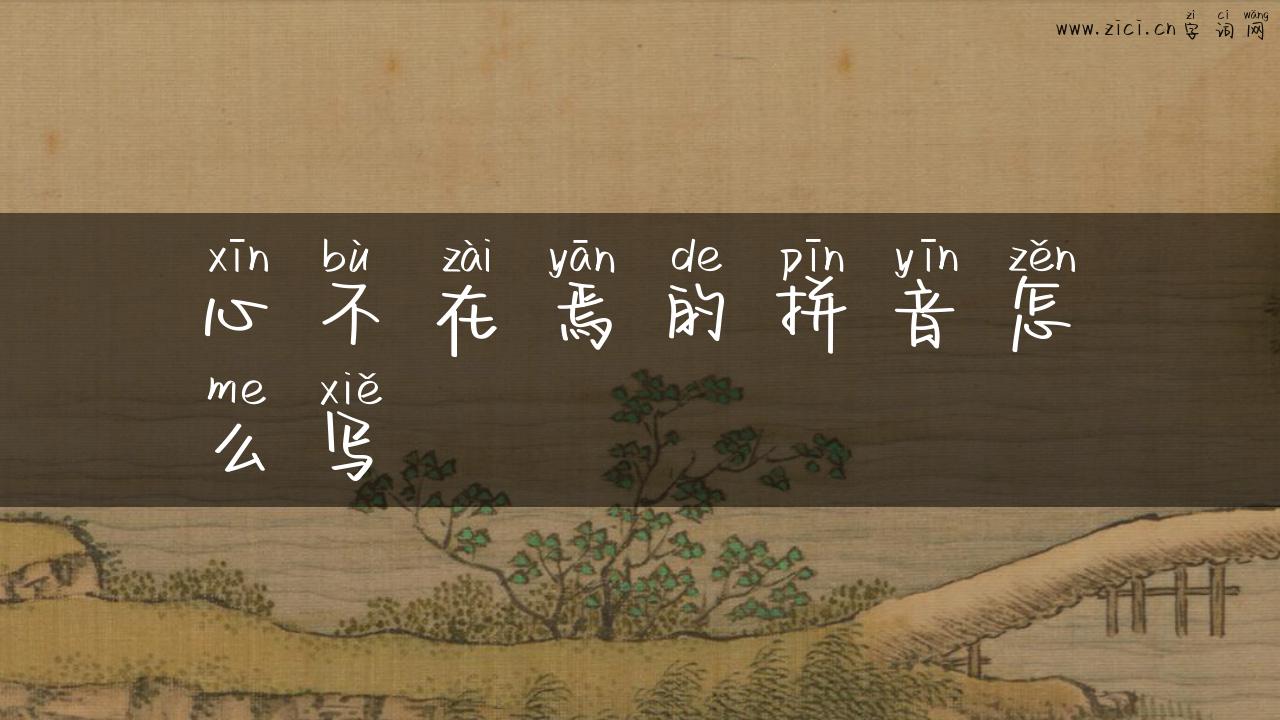 zì cí wǎng
www.zici.cn 字词网
xīn bù zài yān de pīn yīn zěn
心不在焉的拼音怎
me xiě
么写